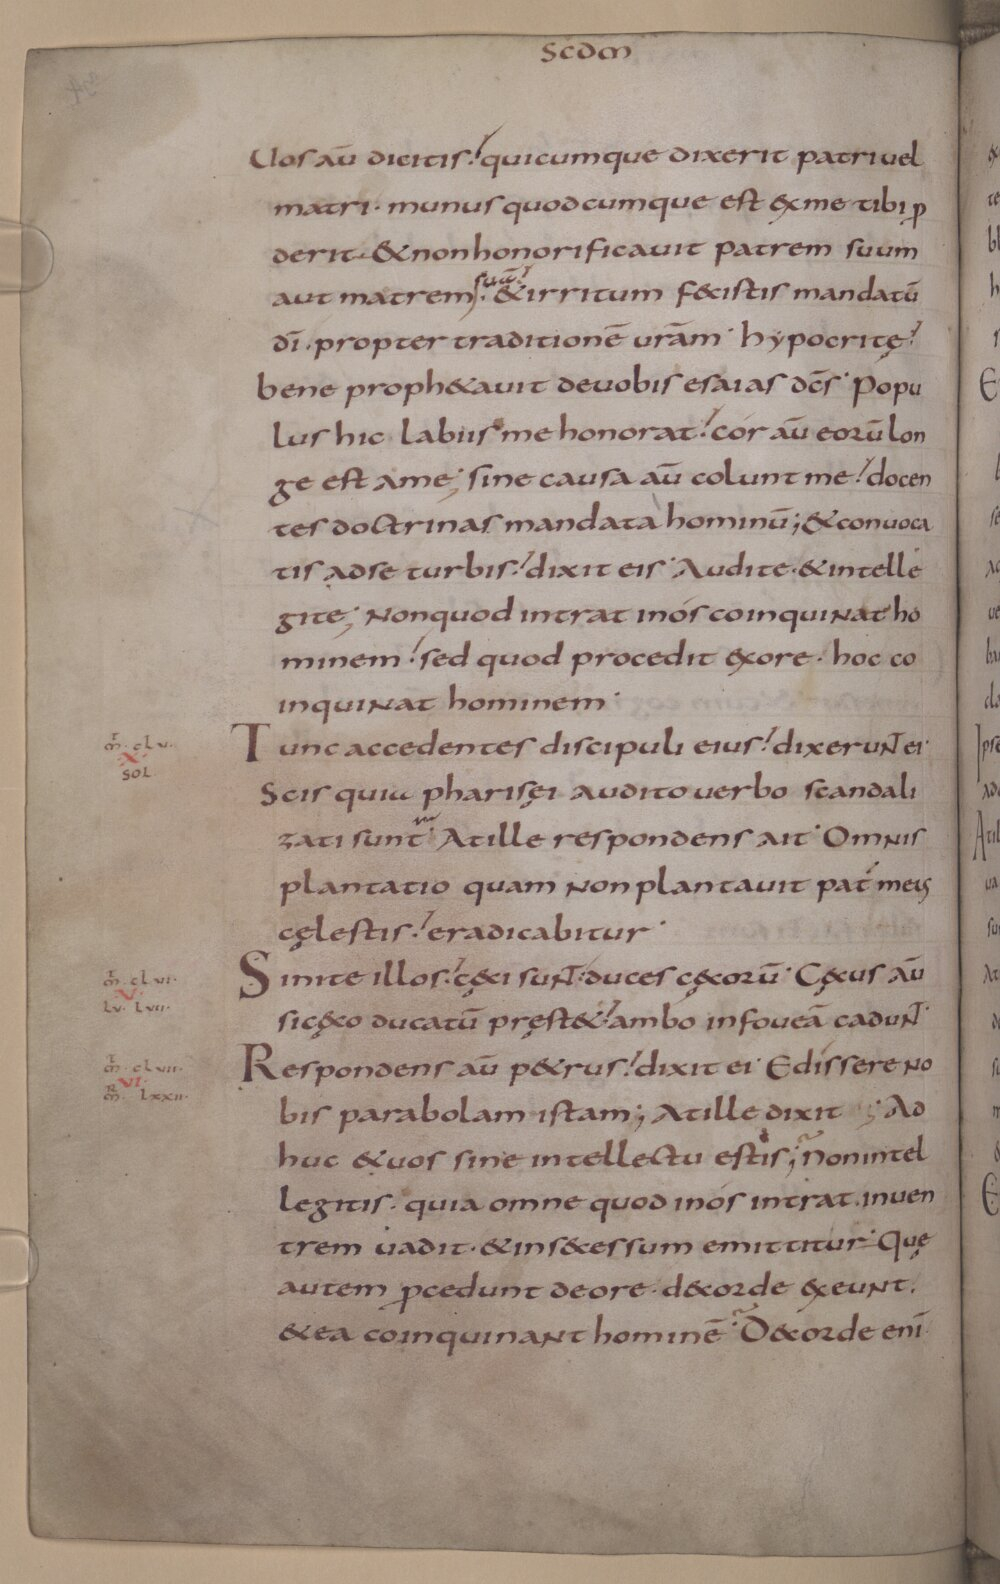 Scdm
Uos aū dicitis. quicumque dixerit patri uel
matri. munus quodcumque est ex me tibi ꝓ
derit. & non honorificauit patrem suum
aut matrem suā. & irritum fecistis mandatū
dī. propter traditionē urām. hypocritę
bene proph&auit deuobis esaias dc̄s. Popu
lus hic labiis me honorat. cor aū eorū lon
ge est ame; sine causa aū colunt me. docen
tes doctrinas mandata hominū; & conuoca
tis adse turbis. dixit eis. Audite. & intelle
gite; Non quod intrat inos coinquinat ho
minem. sed quod procedit exore. hoc co
inquinat hominem.
Tunc accedentes discipuli eius. dixerunt ei.
m̄. clv.
X
SOL
Scis quia pharisęi audito uerbo scandali
zati sunt. Atille respondens ait. Omnis
plantatio quam non plantauit pat̄ meus
cęlestis. eradicabitur.
Sinite illos. cęci sunt. duces cęcorū. Cęcus aū
m̄. clvi.
V
lv. lvii.
si cęco ducatū pręst&. ambo infoueā cadunt.
Respondens aū p&rus. dixit ei. Edissere no
m̄. clvii.
VI
m̄. lxxii.
bis parabolam istam; Atille dixit; Ad
huc & uos sine intellectu estis; Non intel
legitis. quia omne quod inos intrat. inuen
trem uadit. & insecessum emittitur. Quę
autem ꝓcedunt de ore. decorde exeunt.
& ea coinquinant hominē. Decorde enī